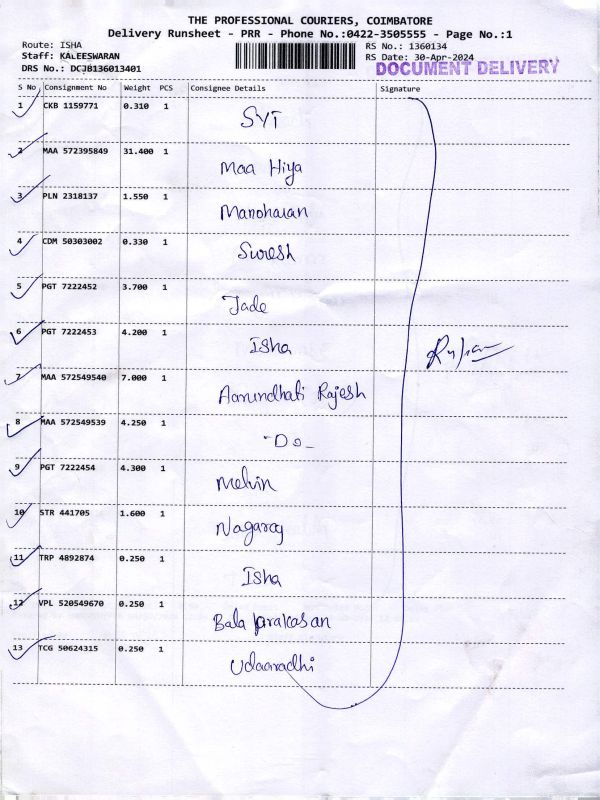 THE PROFESSIONAL COURIERS, COIMBATORE
Delivery Runsheet - PRR - Phone No.:0422-3505555 - Page No.:1
Route: ISHA RS No.: 1360134
Staff: KALEESWARAN RS Date: 30-Apr-2024
DRS No.: DCJB136013401 DOCUMENT DELIVERY
S No Consignment No Weight PCS Consignee Details Signature
1 CKB 1159771 0.310 1 SYI
2 MAA 572395849 31.400 1 Maa Hiya
3 PLN 2318137 1.550 1 Manoharan
4 CDM 50303002 0.330 1 Suresh
5 PGT 7222452 3.700 1 Jade
6 PGT 7222453 4.200 1 Isha
7 MAA 572549540 7.000 1 Aarundhati Rajesh
8 MAA 572549539 4.250 1 -Do-
9 PGT 7222454 4.300 1 Melvin
10 STR 441705 1.600 1 Nagaraj
11 TRP 4892874 0.250 1 Isha
12 VPL 520549670 0.250 1 Bala prakasan
13 TCG 50624315 0.250 1